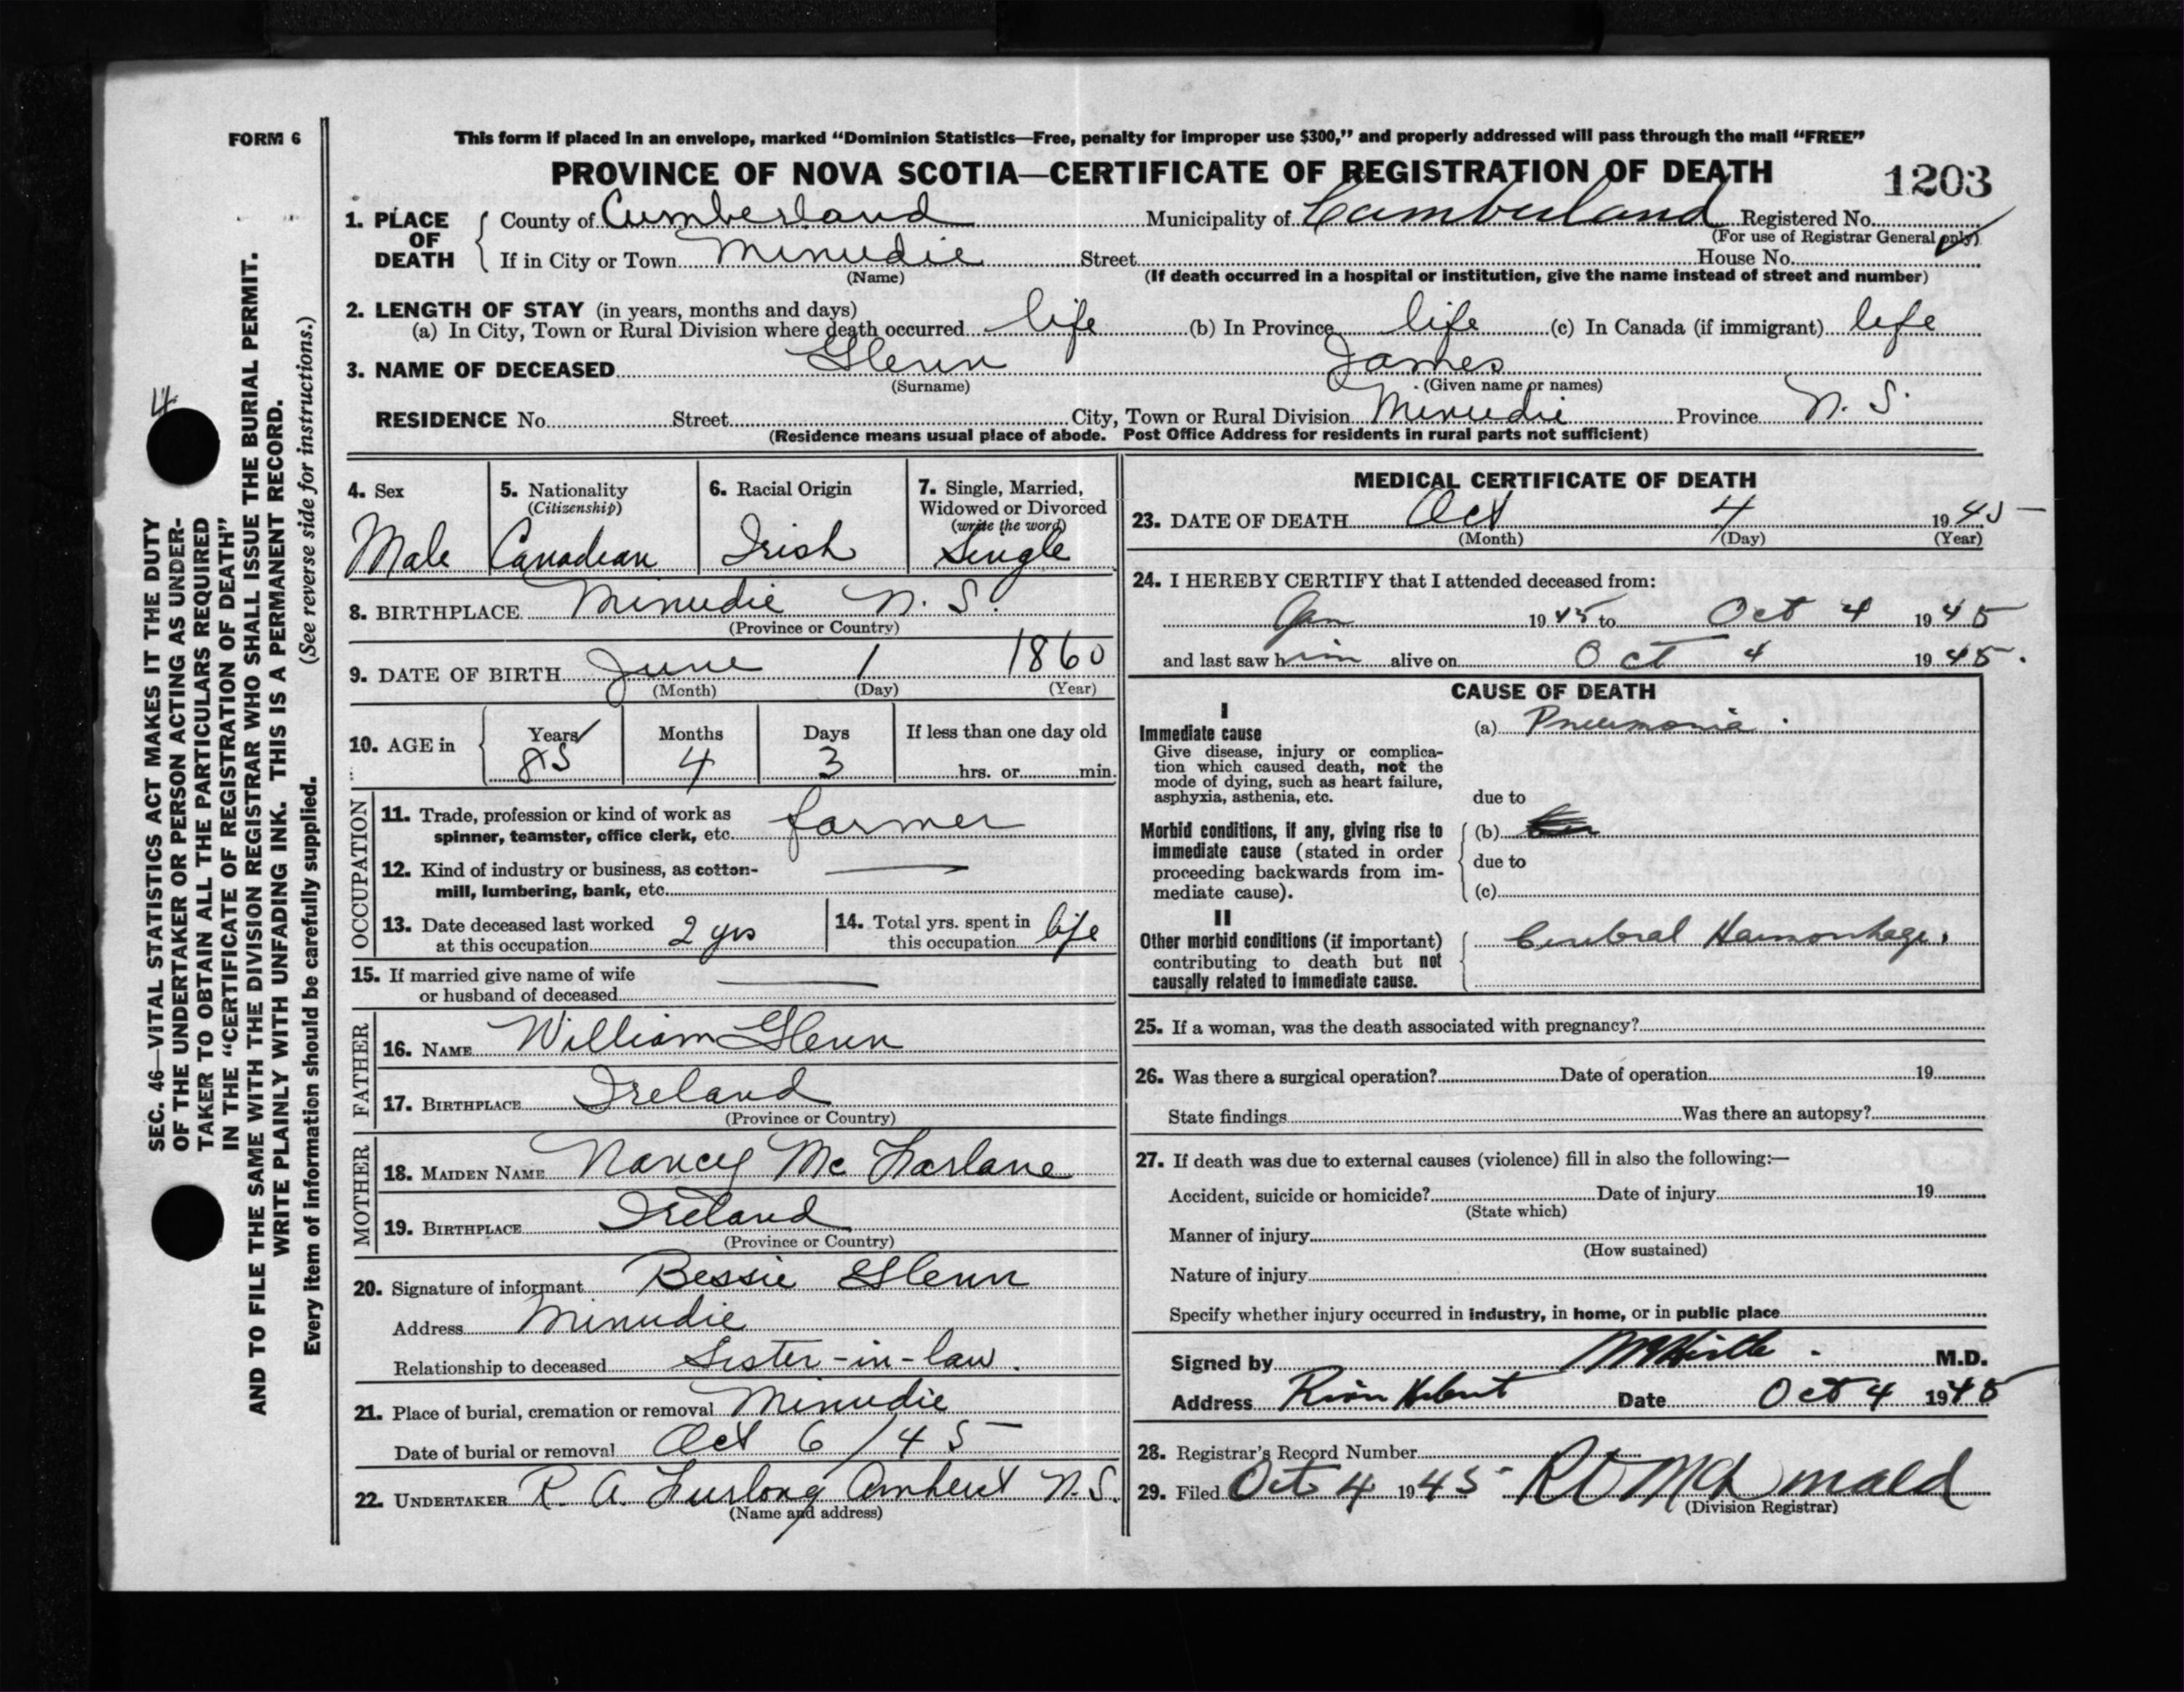 FORM 6
This form if placed in an envelope, marked “Dominion Statistics—Free, penalty for improper use $300,” and properly addressed will pass through the mail “FREE”
PROVINCE OF NOVA SCOTIA—CERTIFICATE OF REGISTRATION OF DEATH
1203
1. PLACE OF DEATH
County of Cumberland Municipality of Cumberland Registered No.
(For use of Registrar General only)
If in City or Town Minudie Street House No.
(Name) (If death occurred in a hospital or institution, give the name instead of street and number)
2. LENGTH OF STAY (in years, months and days)
(a) In City, Town or Rural Division where death occurred life (b) In Province life (c) In Canada (if immigrant) life
3. NAME OF DECEASED Glenn James
(Surname) (Given name or names)
RESIDENCE No. Street City, Town or Rural Division Minudie Province N. S.
(Residence means usual place of abode. Post Office Address for residents in rural parts not sufficient)
4. Sex
Male
5. Nationality
(Citizenship)
Canadian
6. Racial Origin
Irish
7. Single, Married,
Widowed or Divorced
(write the word)
Single
8. BIRTHPLACE Minudie N. S.
(Province or Country)
9. DATE OF BIRTH June 1 1860
(Month) (Day) (Year)
10. AGE in Years Months Days If less than one day old
85 4 3 hrs. or min.
OCCUPATION
11. Trade, profession or kind of work as
spinner, teamster, office clerk, etc. farmer
12. Kind of industry or business, as cotton-
mill, lumbering, bank, etc. —
13. Date deceased last worked
at this occupation 2 yrs
14. Total yrs. spent in
this occupation life
15. If married give name of wife
or husband of deceased —
FATHER
16. NAME William Glenn
17. BIRTHPLACE Ireland
(Province or Country)
MOTHER
18. MAIDEN NAME Nancy McFarlane
19. BIRTHPLACE Ireland
(Province or Country)
20. Signature of informant Bessie Glenn
Address Minudie
Relationship to deceased Sister-in-law.
21. Place of burial, cremation or removal Minudie
Date of burial or removal Oct 6/45
22. UNDERTAKER R. A. Furlong Amherst N.S.
(Name and address)
MEDICAL CERTIFICATE OF DEATH
23. DATE OF DEATH Oct 4 1945
(Month) (Day) (Year)
24. I HEREBY CERTIFY that I attended deceased from:
Jan 1945 to Oct 4 1945
and last saw him alive on Oct 4 1945.
CAUSE OF DEATH
I
Immediate cause
Give disease, injury or complica-
tion which caused death, not the
mode of dying, such as heart failure,
asphyxia, asthenia, etc.
(a) Pneumonia.
due to
Morbid conditions, if any, giving rise to
immediate cause (stated in order
proceeding backwards from im-
mediate cause).
(b)
due to
(c)
II
Other morbid conditions (if important)
contributing to death but not
causally related to immediate cause.
Cerebral Haemorrhage.
25. If a woman, was the death associated with pregnancy?
26. Was there a surgical operation? Date of operation 19
State findings Was there an autopsy?
27. If death was due to external causes (violence) fill in also the following:—
Accident, suicide or homicide? Date of injury 19
(State which)
Manner of injury
(How sustained)
Nature of injury
Specify whether injury occurred in industry, in home, or in public place
Signed by M.D.
Address River Hebert Date Oct 4 1945
28. Registrar's Record Number
29. Filed Oct 4 1945 McDonald
(Division Registrar)
4
SEC. 46—VITAL STATISTICS ACT MAKES IT THE DUTY
OF THE UNDERTAKER OR PERSON ACTING AS UNDER-
TAKER TO OBTAIN ALL THE PARTICULARS REQUIRED
IN THE “CERTIFICATE OF REGISTRATION OF DEATH”
AND TO FILE THE SAME WITH THE DIVISION REGISTRAR WHO SHALL ISSUE THE BURIAL PERMIT.
WRITE PLAINLY WITH UNFADING INK. THIS IS A PERMANENT RECORD.
Every item of information should be carefully supplied. (See reverse side for instructions.)